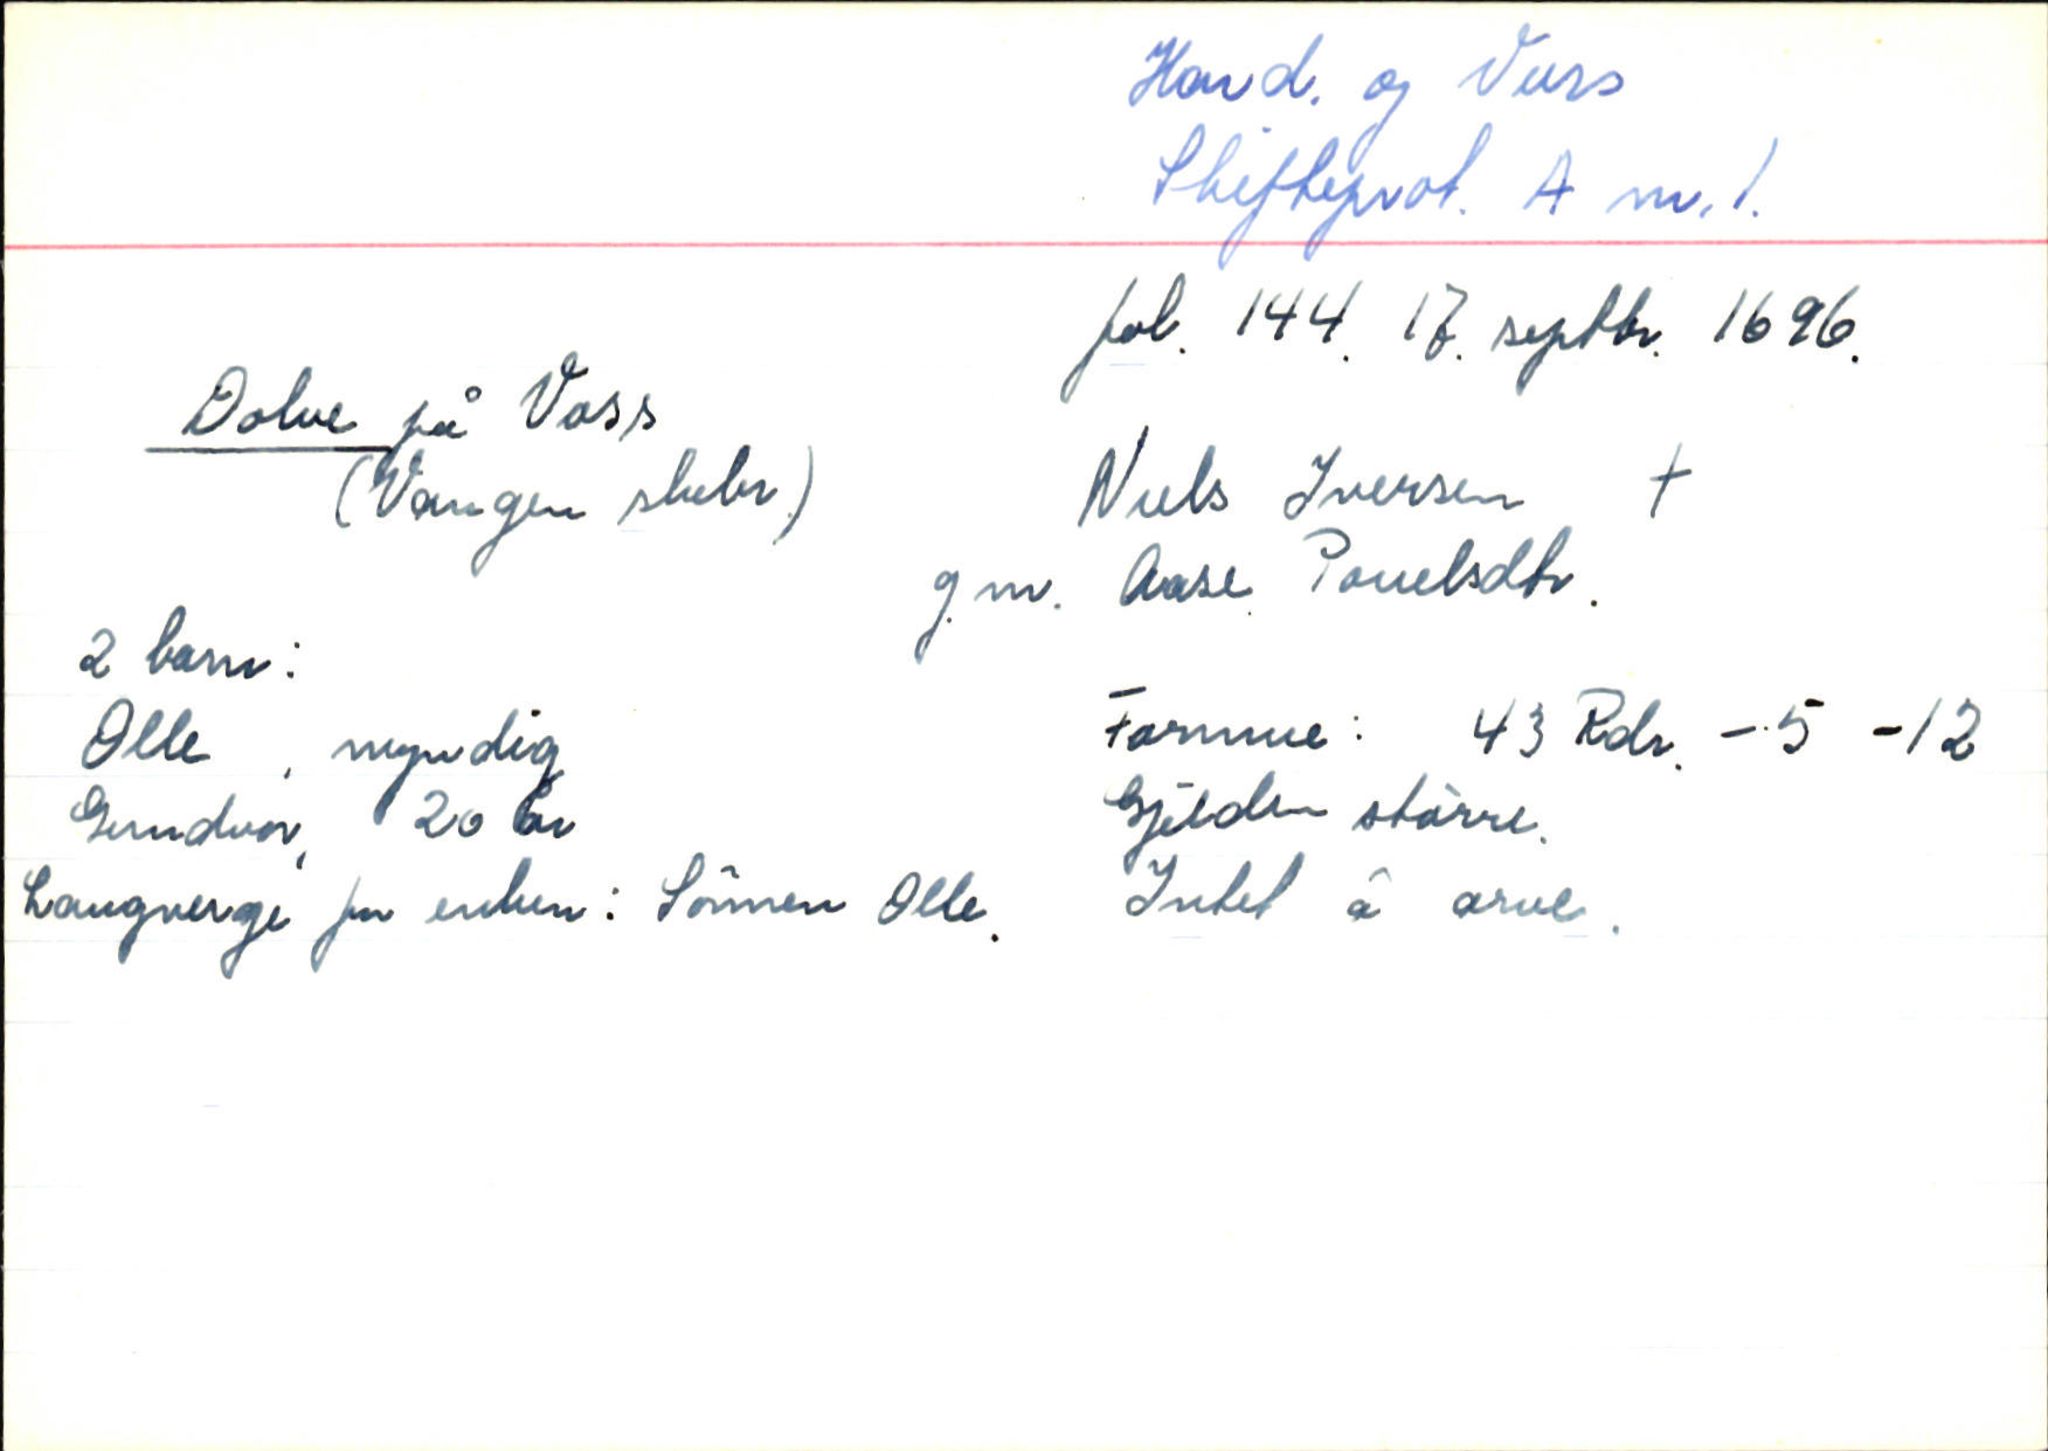 Hard. og Vers
Skifteprot. A nr. 1.
fol. 144. 17. septbr. 1696.
Dolve på Voss
(Vangen skibr.)
Niels Iversen †
g.m. Aase Pouelsdtr.
2 barn:
Olle, myndig
Gundvor, 20 år
Laugverge for enken: Sönnen Olle.
Formue: 43 Rdr. - 5 - 12
Gjelden større.
Intet å arve.